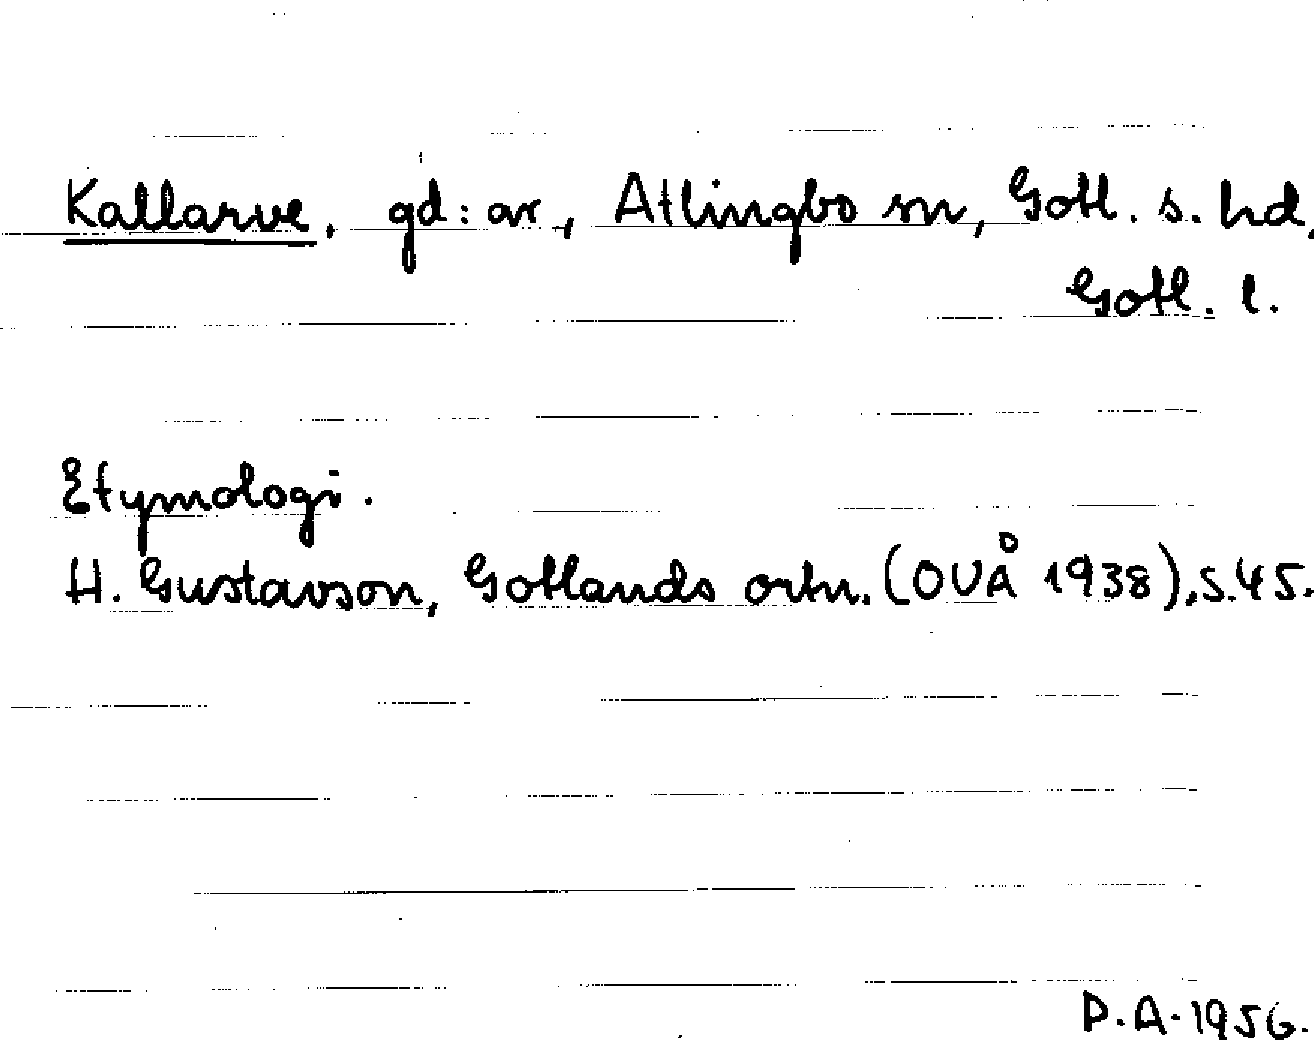 Kallarve, gd: ar, Atlingbo sn, Gotl. s. hd,
Gotl. l.
Etymologi.
H. Gustavson, Gotlands ortn. (OUÅ 1938), s. 45.
D.A. 1956.